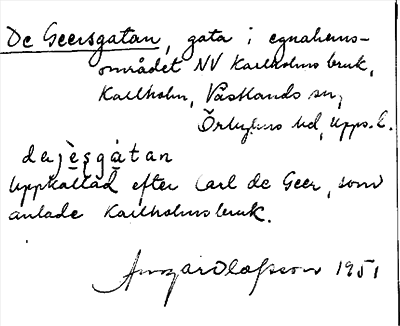 De Geersgatan, gata i egnahems-
området NV Karlholms bruk,
Karlholm, Västlands sn,
Örbyhus hd, Upps. l.
dajèsgàtan
Uppkallad efter Carl de Geer, som
anlade Karlholms bruk.
Olofsson 1951